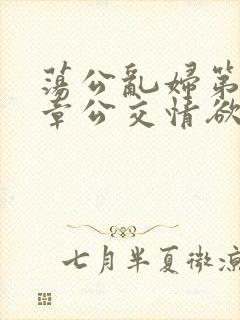 蕩公亂婦第
章公交情欲
七月半夏微涼